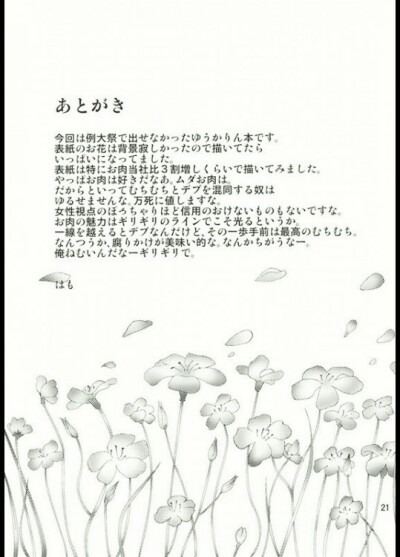 あとがき
今回は例大祭で出せなかったゆうかりん本です。
表紙のお花は背景寂しかったので描いてたら
いっぱいになってました。
表紙は特にお肉当社比3割増しくらいで描いてみました。
やっぱお肉は好きだなあ。ムダお肉は。
だからといってむちむちとデブを混同する奴は
ゆるせませんな。万死に値しますな。
女性視点のぽっちゃりほど信用のおけないものもないですな。
お肉の魅力はギリギリのラインでこそ光るというか。
一線を越えるとデブなんだけど、その一歩手前は最高のむちむち。
なんつうか、腐りかけが美味い的な。なんかちがうなー。
俺ねむいんだなーギリギリで。
はも
21